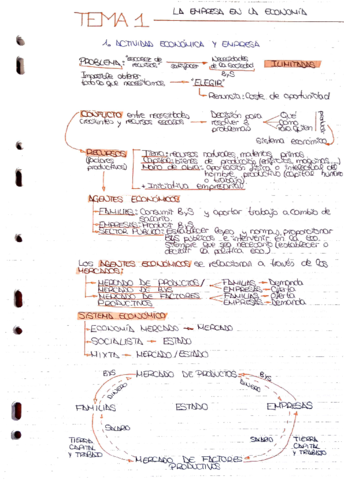 LA EMPRESA EN LA ECONOMÍA
TEMA 1
1. ACTIVIDAD ECONÓMICA Y EMPRESA
PROBLEMA: "escasez de recursos" satisfacer Necesidades de la sociedad ILIMITADAS
ByS
Imposible obtener todo lo que necesitamos → "ELEGIR"
Renuncia: Coste de oportunidad
CONFLICTO entre necesidades crecientes y recursos escasos
Decisión para resolver 3 problemas
Qué
Cómo
Para quién
producir
Sistema económico
RECURSOS (factores productivos)
Tierra: recursos naturales, materias primas
Capital: bienes de producción (edificios, máquinas...)
Mano de obra: aportación física o intelectual del hombre productivo (capital humano o trabajo)
+ Iniciativa empresarial
AGENTES ECONÓMICOS
- FAMILIAS: Consumir ByS y aportar trabajo a cambio de salario.
- EMPRESAS: Producir ByS
- SECTOR PÚBLICO: Establecer leyes y normas, proporcionar ByS públicos e intervenir en la eco. siempre que sea necesario (establecer o decidir la política eco.)
Los AGENTES ECONÓMICOS se relacionan a través de los MERCADOS:
MERCADO DE PRODUCTOS/
MERCADO DE BYS
FAMILIAS → Demanda
EMPRESAS → Oferta
MERCADO DE FACTORES PRODUCTIVOS
FAMILIAS → Oferta
EMPRESAS → Demanda
SISTEMA ECONÓMICO
ECONOMÍA MERCADO → MERCADO
SOCIALISTA → ESTADO
MIXTA → MERCADO/ESTADO
BYS
MERCADO DE PRODUCTOS
BYS
DINERO
DINERO
FAMILIAS
ESTADO
EMPRESAS
SALARIO
SALARIO
TIERRA CAPITAL Y TRABAJO
TIERRA CAPITAL Y TRABAJO
MERCADO DE FACTORES PRODUCTIVOS